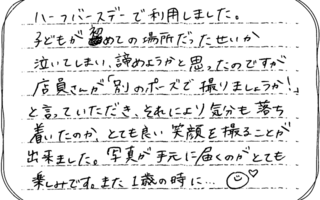 ハーフバースデーで利用しました。
子どもが初めての場所だったせいか
泣いてしまい、諦めようかと思ったのですが
店員さんが「別のポーズで撮りましょうか!」
と言っていただき、それにより気分も落ち
着いたのか、とても良い笑顔を撮ることが
出来ました。写真が手元に届くのがとても
楽しみです。また1歳の時に…